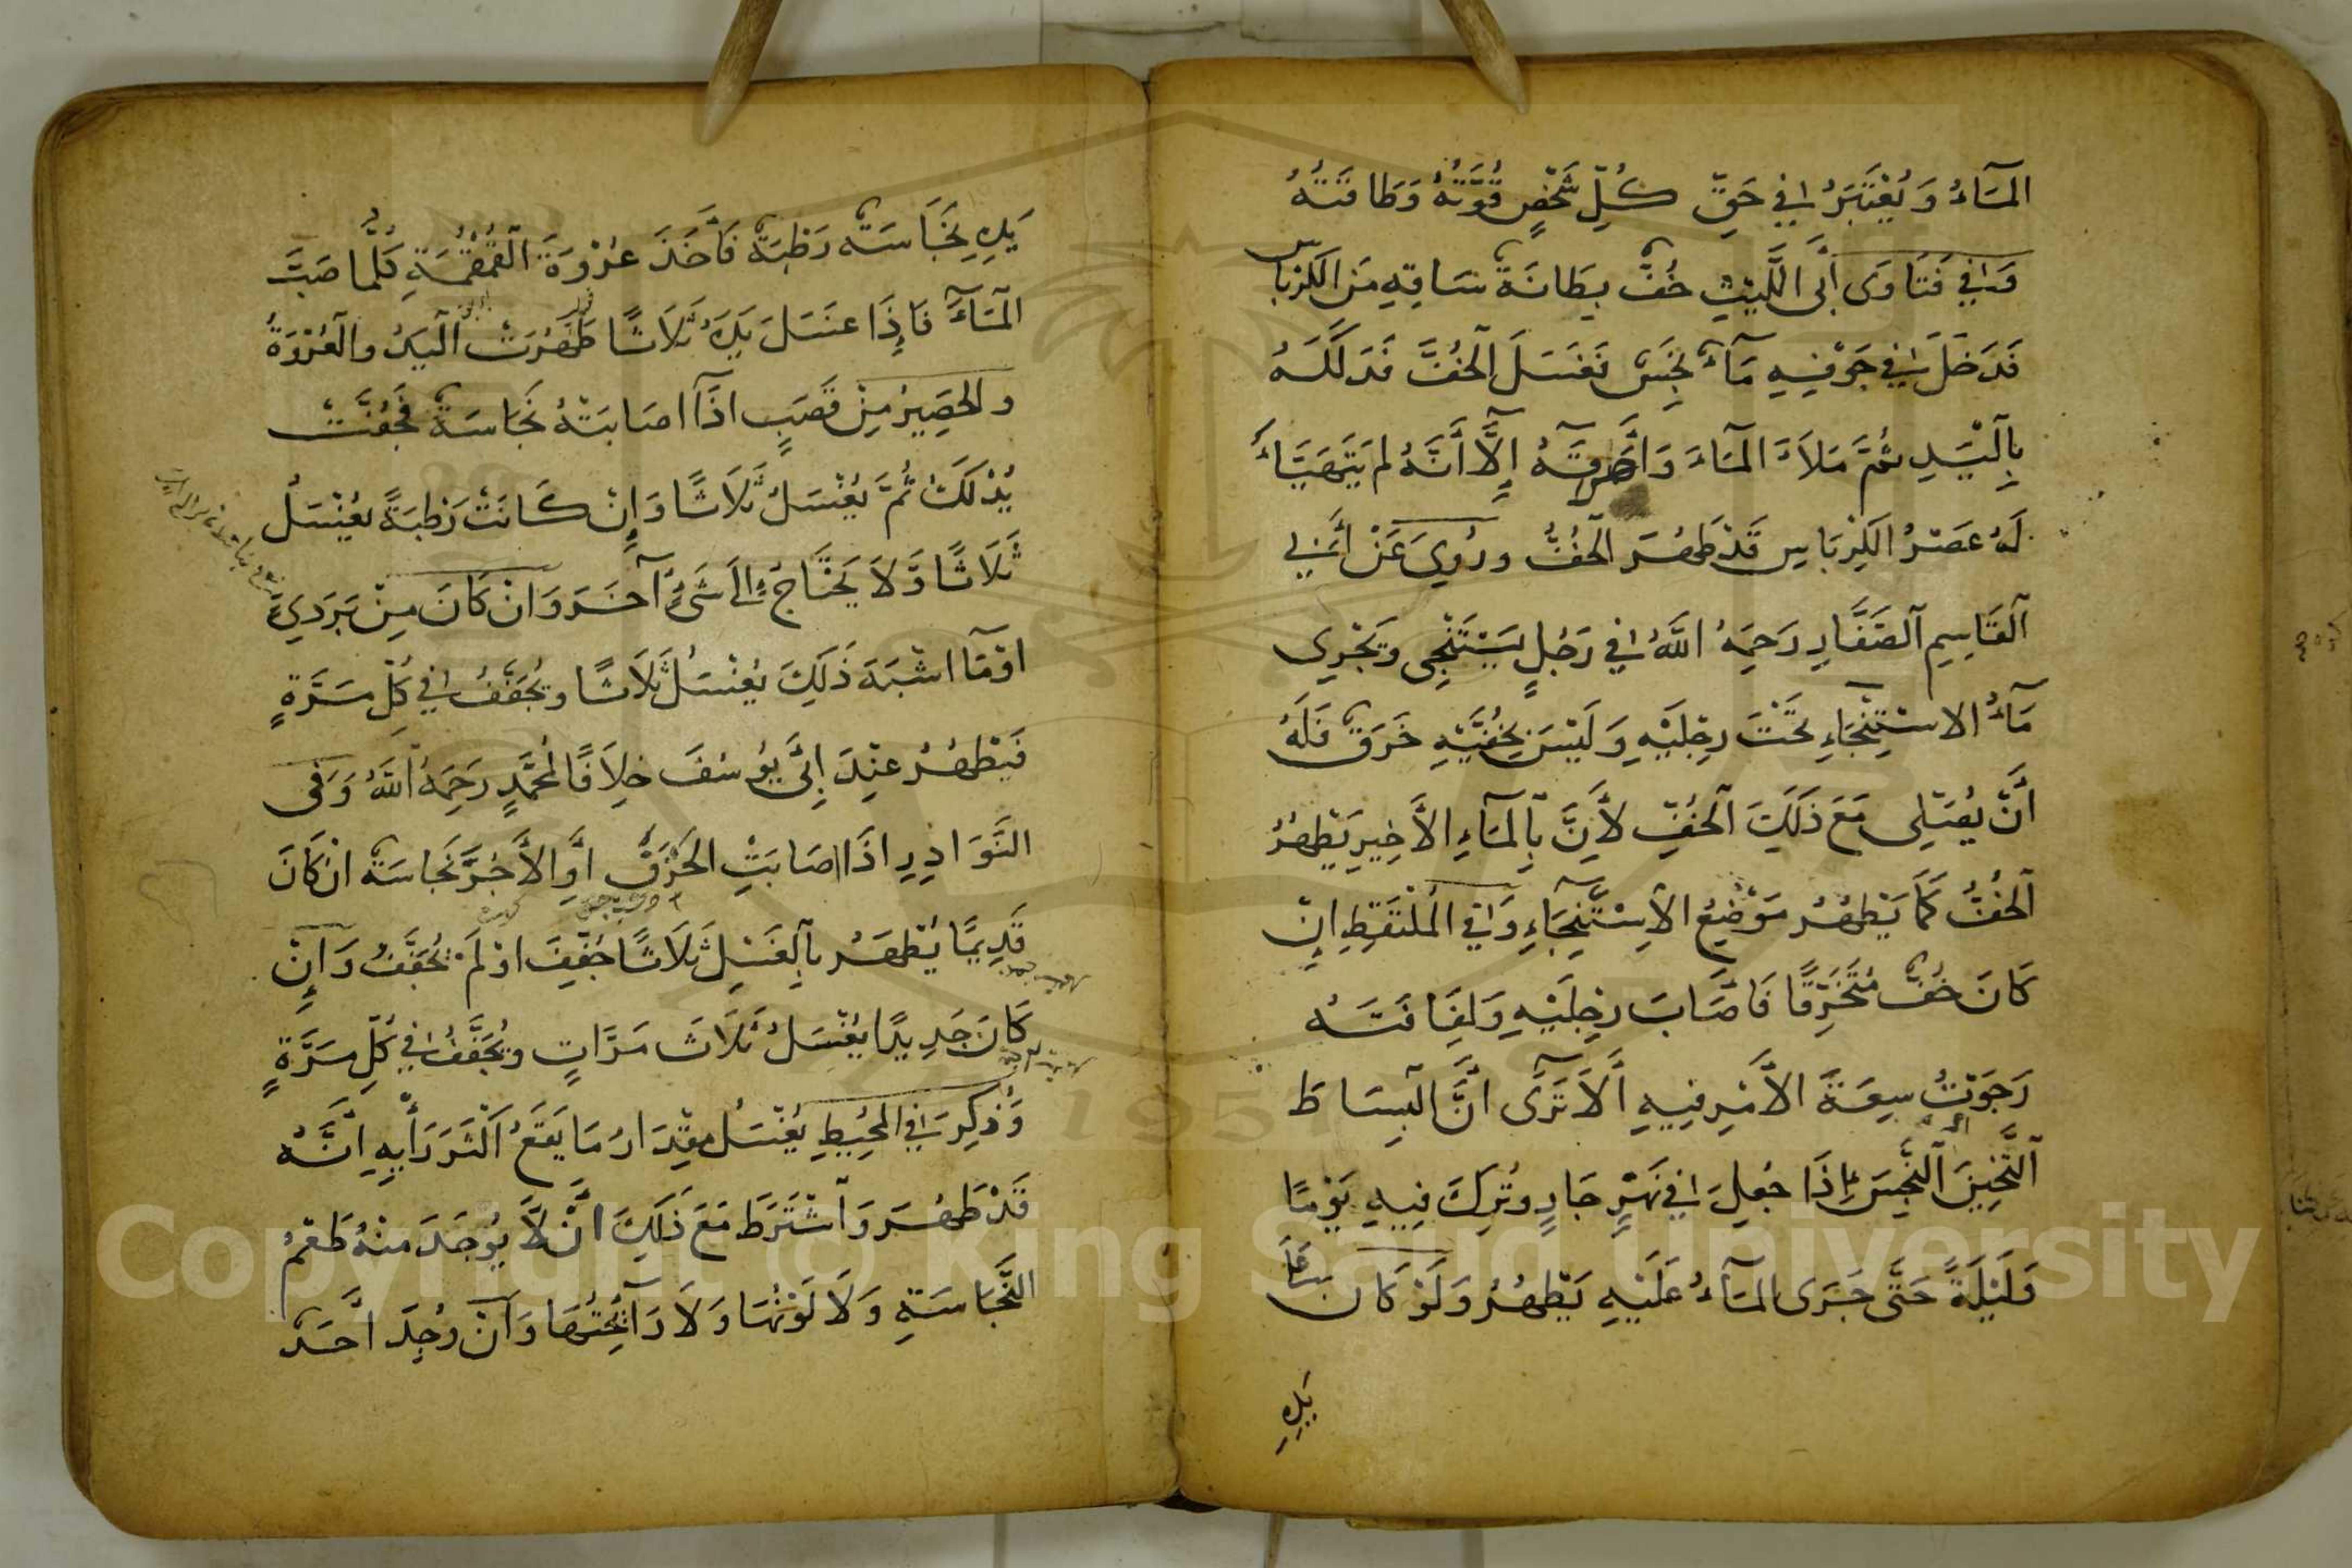 المَآءُ وَيُعْتَبَرُ فِي حَقِّ كُلِّ شَخْصٍ قُوَّتُهُ وَطَاقَتُهُ
وَفِي فَتَاوَى أَبِي اللَّيْثِ خُفٌّ بِطَانَةُ سَاقِهِ مِنَ الكِرْبَاسِ
فَدَخَلَ فِي جَوْفِهِ مَآءٌ نَجِسٌ فَغَسَلَ الْخُفَّ فَدَلَكَهُ
بِالْيَدِ ثُمَّ مَلَأَ الْمَآءَ وَأَهْرَقَهُ إِلَّا أَنَّهُ لَمْ يَتَهَيَّأْ
لَهُ عَصْرُ الكِرْبَاسِ قَدْ طَهُرَ الْخُفُّ وَرُوِيَ عَنْ أَبِي
الْقَاسِمِ الصَّفَّارِ رَحِمَهُ اللَّهُ فِي رَجُلٍ يَسْتَنْجِي وَيَجْرِي
مَآءُ الاسْتِنْجَاءِ تَحْتَ رِجْلَيْهِ وَلَيْسَ بِخُفَّيْهِ خَرْقٌ فَلَهُ
أَنْ يُصَلِّي مَعَ ذَلِكَ الْخُفِّ لِأَنَّ بِالْمَآءِ الأَخِيرِ يَطْهُرُ
الْخُفُّ كَمَا يَطْهُرُ مَوْضِعُ الْاِسْتِنْجَآءِ وَفِي الْمُلْتَقَطِ إِنْ
كَانَ خُفٌّ مُتَخَرِّقًا فَأَصَابَ رِجْلَيْهِ وَلِفَافَتَهُ
رَجَوْتُ سِعَةَ الأَمْرِ فِيهِ أَلَا تَرَى أَنَّ الْبِسَاطَ
الثَّخِينَ النَّجِسَ إِذَا جُعِلَ فِي نَهَرٍ جَارٍ وَتُرِكَ فِيهِ يَوْمًا
وَلَيْلَةً حَتَّى جَرَى الْمَآءُ عَلَيْهِ يَطْهُرُ وَلَوْ كَانَ عَلَى
يَدِهِ
يَدِهِ نَجَاسَةٌ رَطْبَةٌ فَأَخَذَ عُرْوَةَ الْقُمْقُمَةِ كُلَّمَا صَبَّ
الْمَآءَ فَإِذَا غَسَلَ يَدَهُ ثَلَاثًا طَهُرَتْ الْيَدُ وَالْعُرْوَةُ
وَالحَصِيرُ مِنْ قَصَبٍ إِذَا أَصَابَتْهُ نَجَاسَةٌ فَجَفَّتْ
يُدْلَكُ ثُمَّ يُغْسَلُ ثَلَاثًا وَإِنْ كَانَتْ رَطْبَةً يُغْسَلُ
ثَلَاثًا وَلَا يَحْتَاجُ إِلَى شَيْءٍ آخَرَ وَانْ كَانَ مِنْ بَرْدِيٍّ
اوْ مَا اشْبَهَ ذَلِكَ يُغْسَلُ ثَلَاثًا وَيُجَفَّفُ فِي كُلِّ مَرَّةٍ
فَيَطْهُرُ عِنْدَ أَبِي يُوسُفَ خِلَافًا لِمُحَمَّدٍ رَحِمَهُ اللَّهُ وَفِي
النَّوَادِرِ اذَا اصَابَتِ الخَزَفَ أَوِ الأَجُرَّ نَجَاسَةٌ انْ كَانَ
قَدِيمًا يُطْهَرُ بِالْغَسْلِ ثَلَاثًا جُفِّفَ اوْ لَمْ يُجَفَّفْ وَإِنْ
كَانَ جَدِيدًا يُغْسَلُ ثَلَاثَ مَرَّاتٍ وَيُجَفَّفُ فِي كُلِّ مَرَّةٍ
وَذُكِرَ فِي الْمُحِيطِ يُغْسَلُ مِقْدَارُ مَا يَقَعُ اكْثَرُ رَأْيِهِ أَنَّهُ
قَدْ طَهُرَ وَاشْتَرَطَ مَعَ ذَلِكَ أَنْ لَا يُوجَدَ مِنْهُ طَعْمُ
النَّجَاسَةِ وَلَا لَوْنُهَا وَلَا رَآئِحَتُهَا وَانْ وُجِدَ أَحَدُ
Copyright © King Saud University
1957